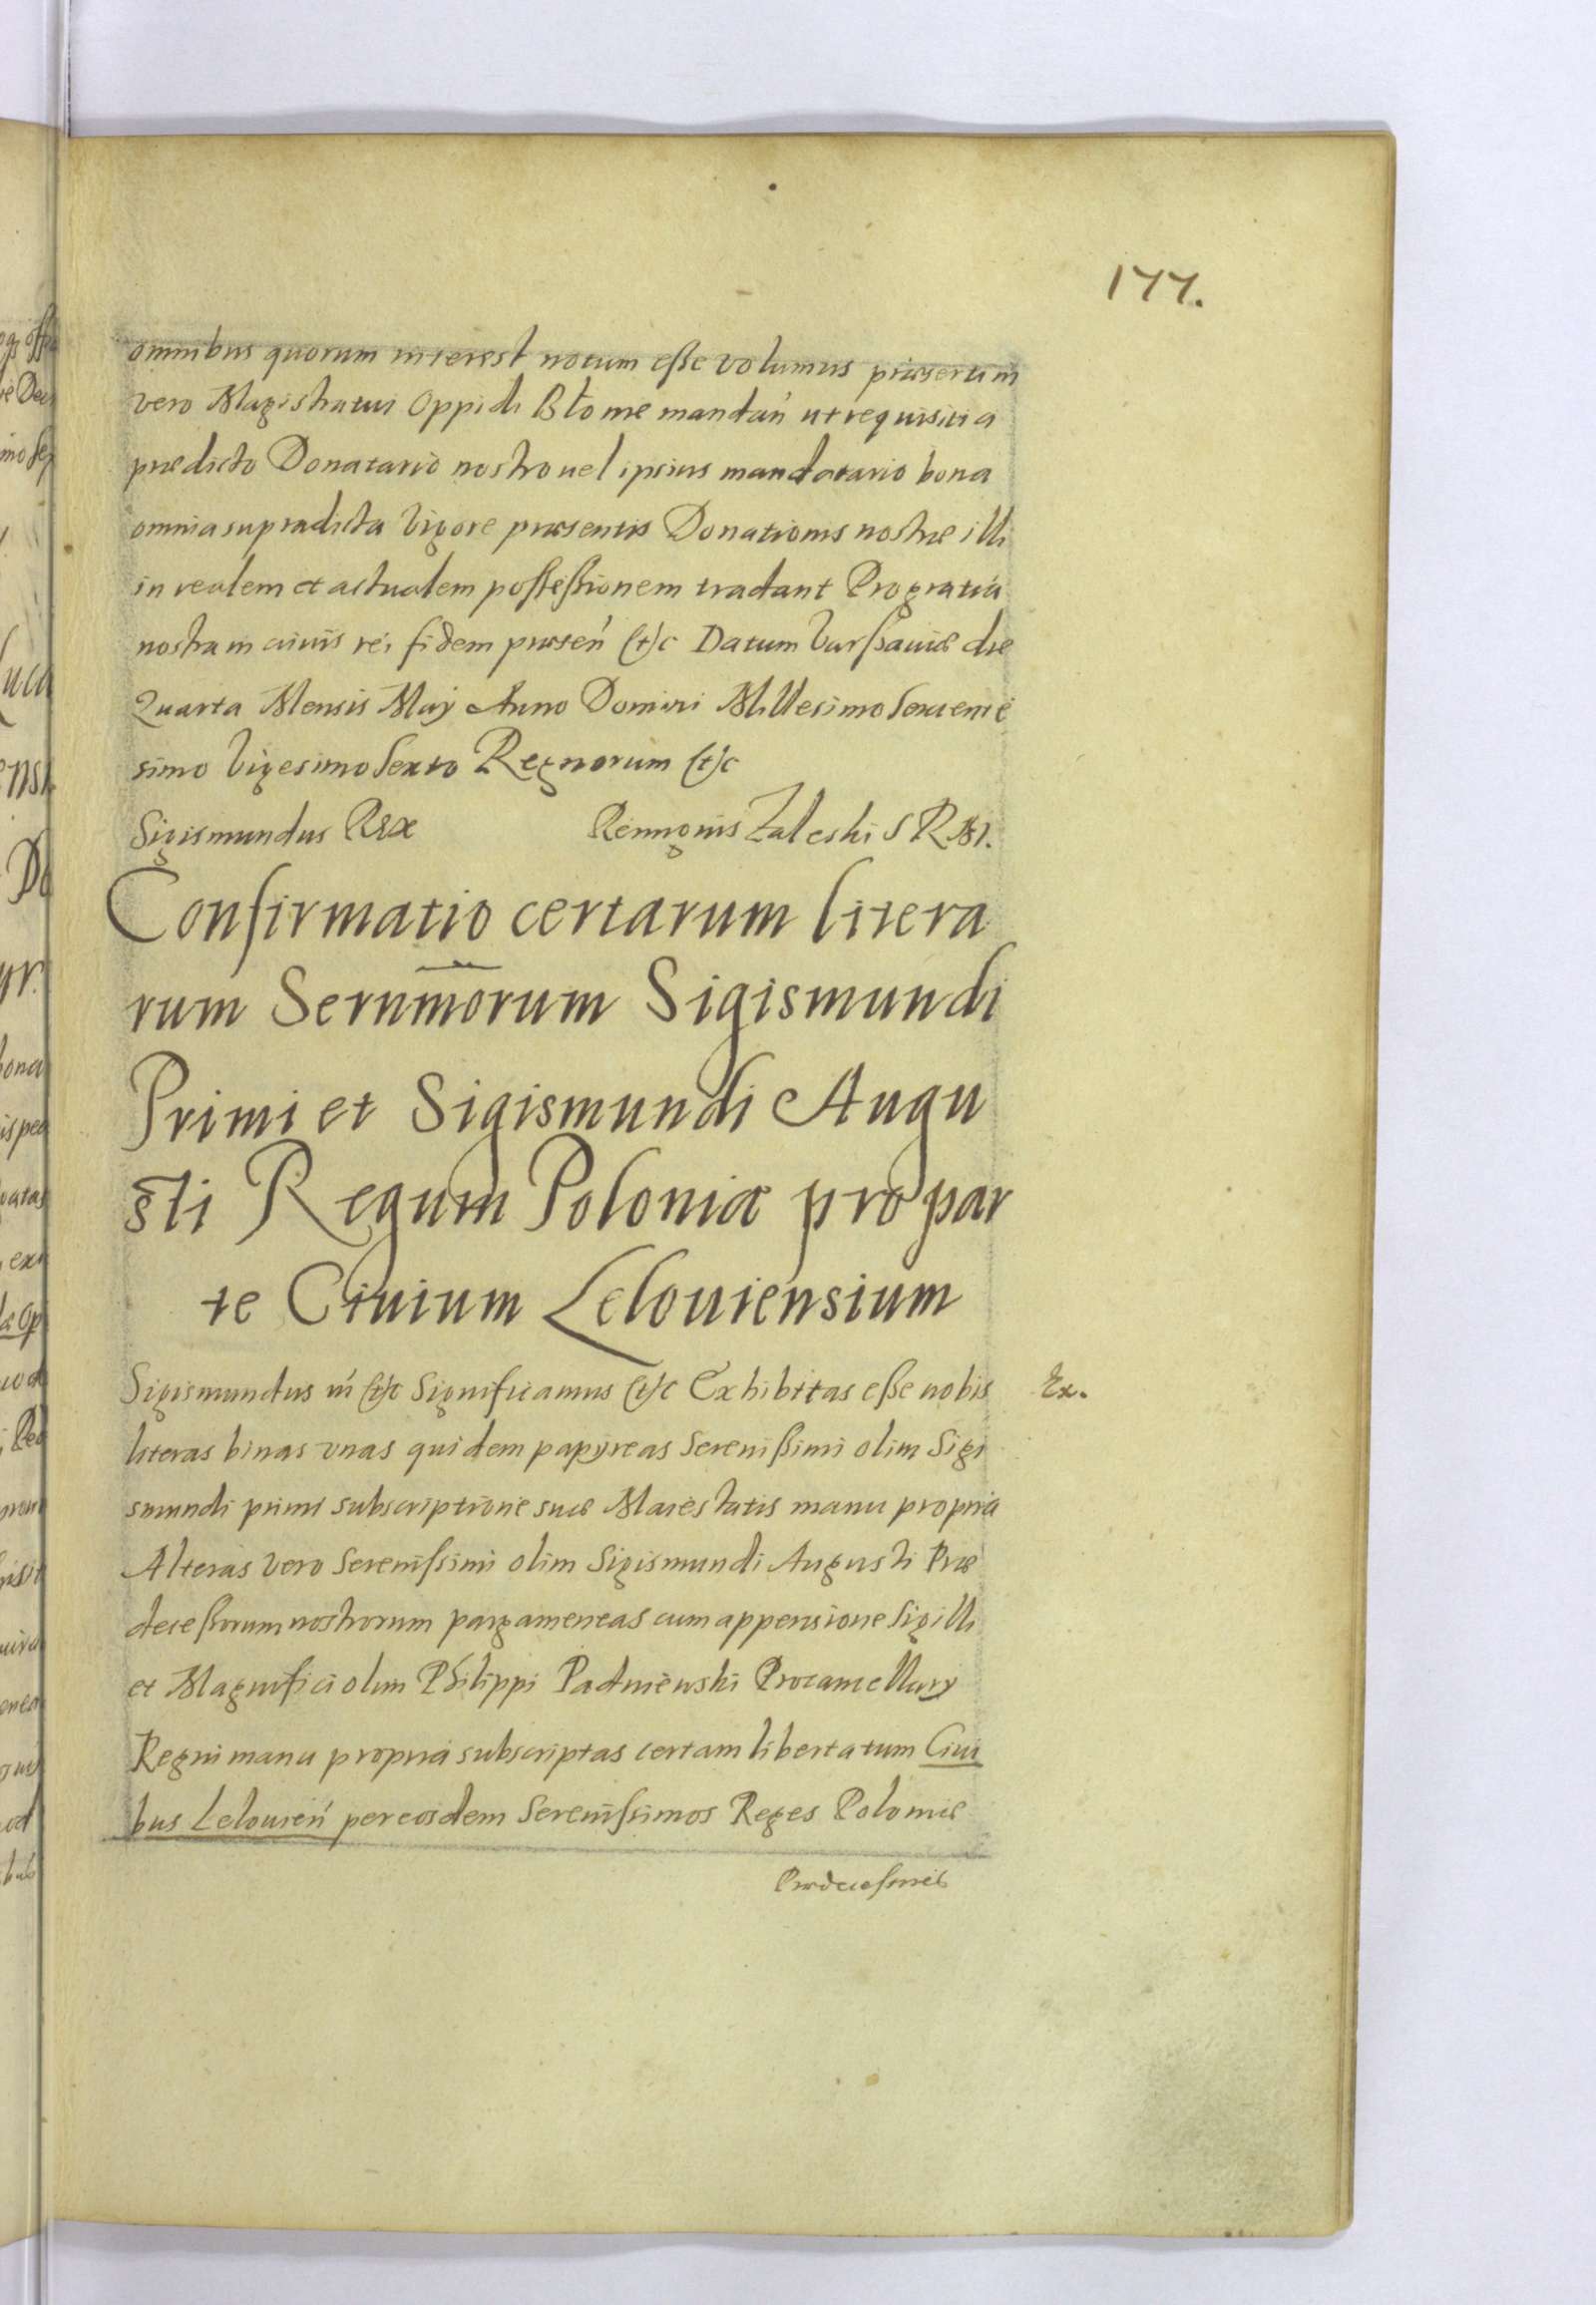 177.
omnibus quorum interest notum esse volumus præsertim
vero Magistratui Oppidi Błonie mandań ut requisiti a
prædicto Donatario nostro uel ipsius mandatario bona
omnia supradicta vigore præsentis Donationis nostræ illi
in realem et actualem possessionem tradant Pro gratia
nostra in cuius rei fidem præseń (t)c Datum Varssaviæ die
Quarta Mensis Maij Anno Domini Millesimo Sexcente
simo Vigesimo Sexto Regnorum (t)c
Sigismundus Rex Remigius Zaleski S R M.
Confirmatio certarum litera
rum Sernmorum Sigismundi
Primi et Sigismundi Augu
sti Regum Poloniæ pro par
te Ciuium Lelouiensium
Sigismundus iii (t)c Significamus (t)c Exhibitas esse nobis
Ex.
literas binas vnas quidem papyreas Serenissimi olim Sigi
smundi primi subscriptione suæ Maiestatis manu propria
Alteras vero Serenissimi olim Sigismundi Augusti Præ
decessorum nostrorum pargameneas cum appensione Sigilli
et Magnifici olim Philippi Padniewski Procancellarij
Regni manu propria subscriptas certam libertatum Ciui
bus Lelouień per eosdem Serenissimos Reges Poloniæ
Prædecessores